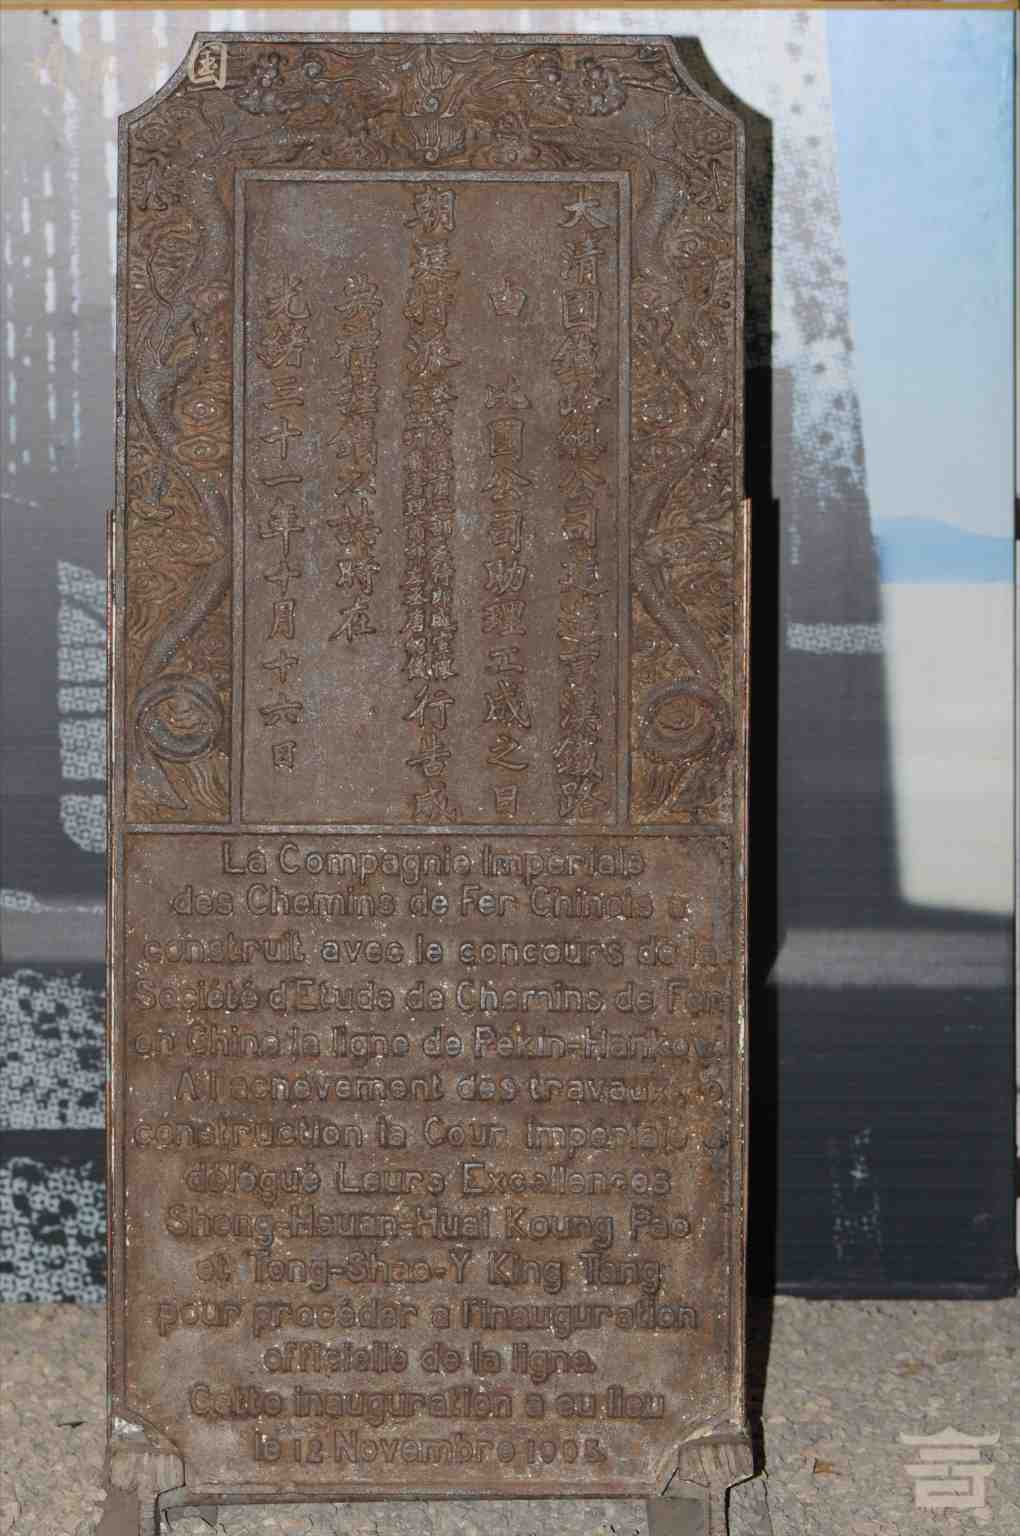 大清国鐵路總公司建造京漢鐵路
由 比国公司助理工成之日
朝廷特派
行告成
光緒三十一年十月十六日
La Compagnie Impériale
des Chemins de Fer Chinois a
construit avec le concours de la
Société d'Etude de Chemins de Fer
en Chine la ligne de Pekin-Hankow.
A l'achèvement des travaux de
construction la Cour Impériale a
délégué Leurs Excellences
Sheng-Hsuan-Huai Koung Pao
et Tong-Shao-Y King Tang
pour procéder a l'inauguration
officielle de la ligne.
Cette inauguration a eu lieu
le 12 Novembre 1905.